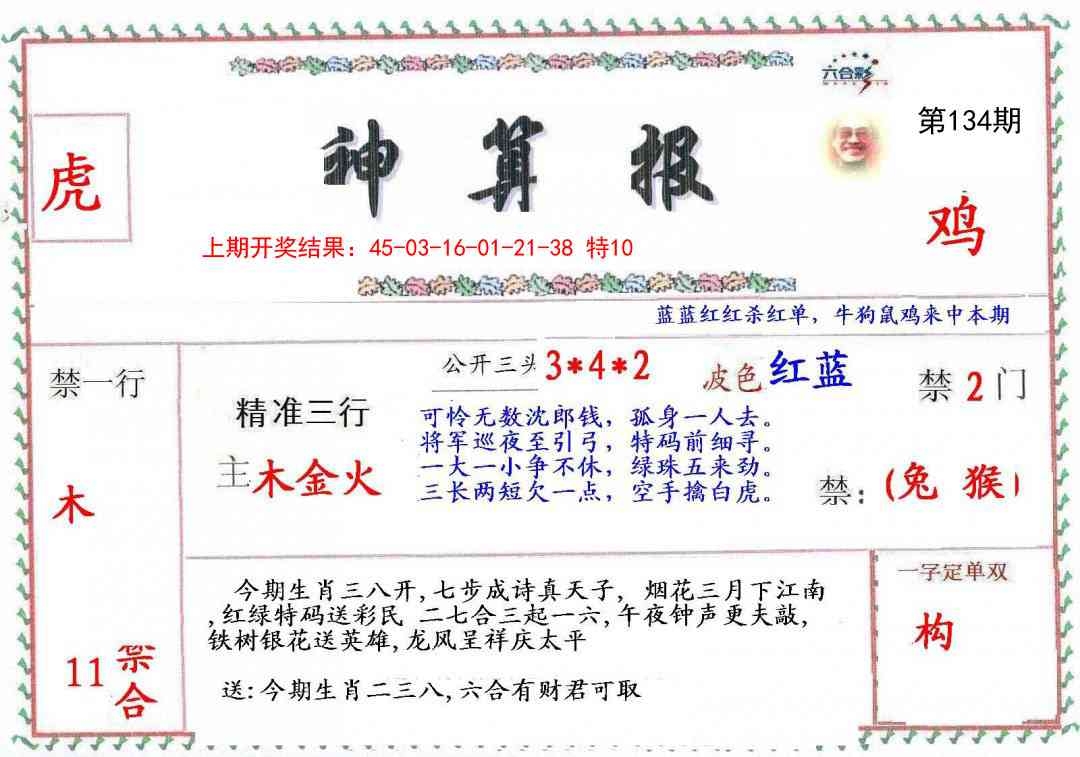 六合彩
第134期
虎
神算报
鸡
上期开奖结果：45-03-16-01-21-38 特10
蓝蓝红红杀红单，牛狗鼠鸡来中本期
禁一行
木
11 禁合
公开三头 3*4*2
波色 红蓝
禁 2 门
精准三行
主木金火
可怜无数沈郎钱，孤身一人去。
将军巡夜至引弓，特码前细寻。
一大一小争不休，绿珠五来劲。
三长两短欠一点，空手擒白虎。
禁：(兔 猴)
今期生肖三八开,七步成诗真天子, 烟花三月下江南
,红绿特码送彩民 二七合三起一六,午夜钟声更夫敲,
铁树银花送英雄,龙风呈祥庆太平
送:今期生肖二三八,六合有财君可取
一字定单双
构